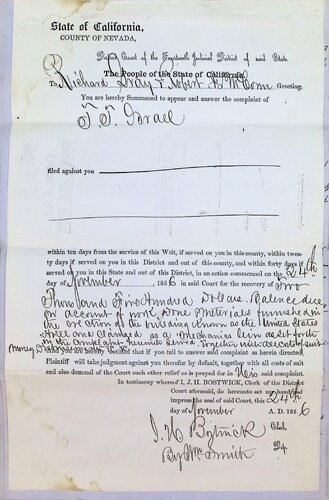 State of California,
COUNTY OF NEVADA,
District Court of the Fourteenth Judicial District of said State.
The People of the State of California,
To Richard Gray & Robert H. McConn Greeting.
You are hereby Summoned to appear and answer the complaint of
T. T. Israel
filed against you
within ten days from the service of this Writ, if served on you in this county, within twenty
days if served on you in this District and out of this county, and within forty days if
served on you in this State and out of this District, in an action commenced on the 24th
day of November 1856 in said Court for the recovery of Two
Thousand Five Hundred Dollars. Balance due
on account of work done & Materials furnished in
the erection of the building known as the United States
Hotel and claimed as a Mechanics lien as set forth
in the complaint hereunto annexed. Together with costs of suit
And you are hereby notified that if you fail to answer said complaint as herein directed,
Plaintiff will take judgment against you therefor by default, together with all costs of suit
and also demand of the Court such other relief as is prayed for in his said complaint.
In testimony whereof I, J. H. BOSTWICK, Clerk of the District
Court aforesaid, do hereunto set my hand and
impress the seal of said Court, this 24th
day of November A. D. 1856
J. H. Bostwick Clerk
By Wm Smith Dep